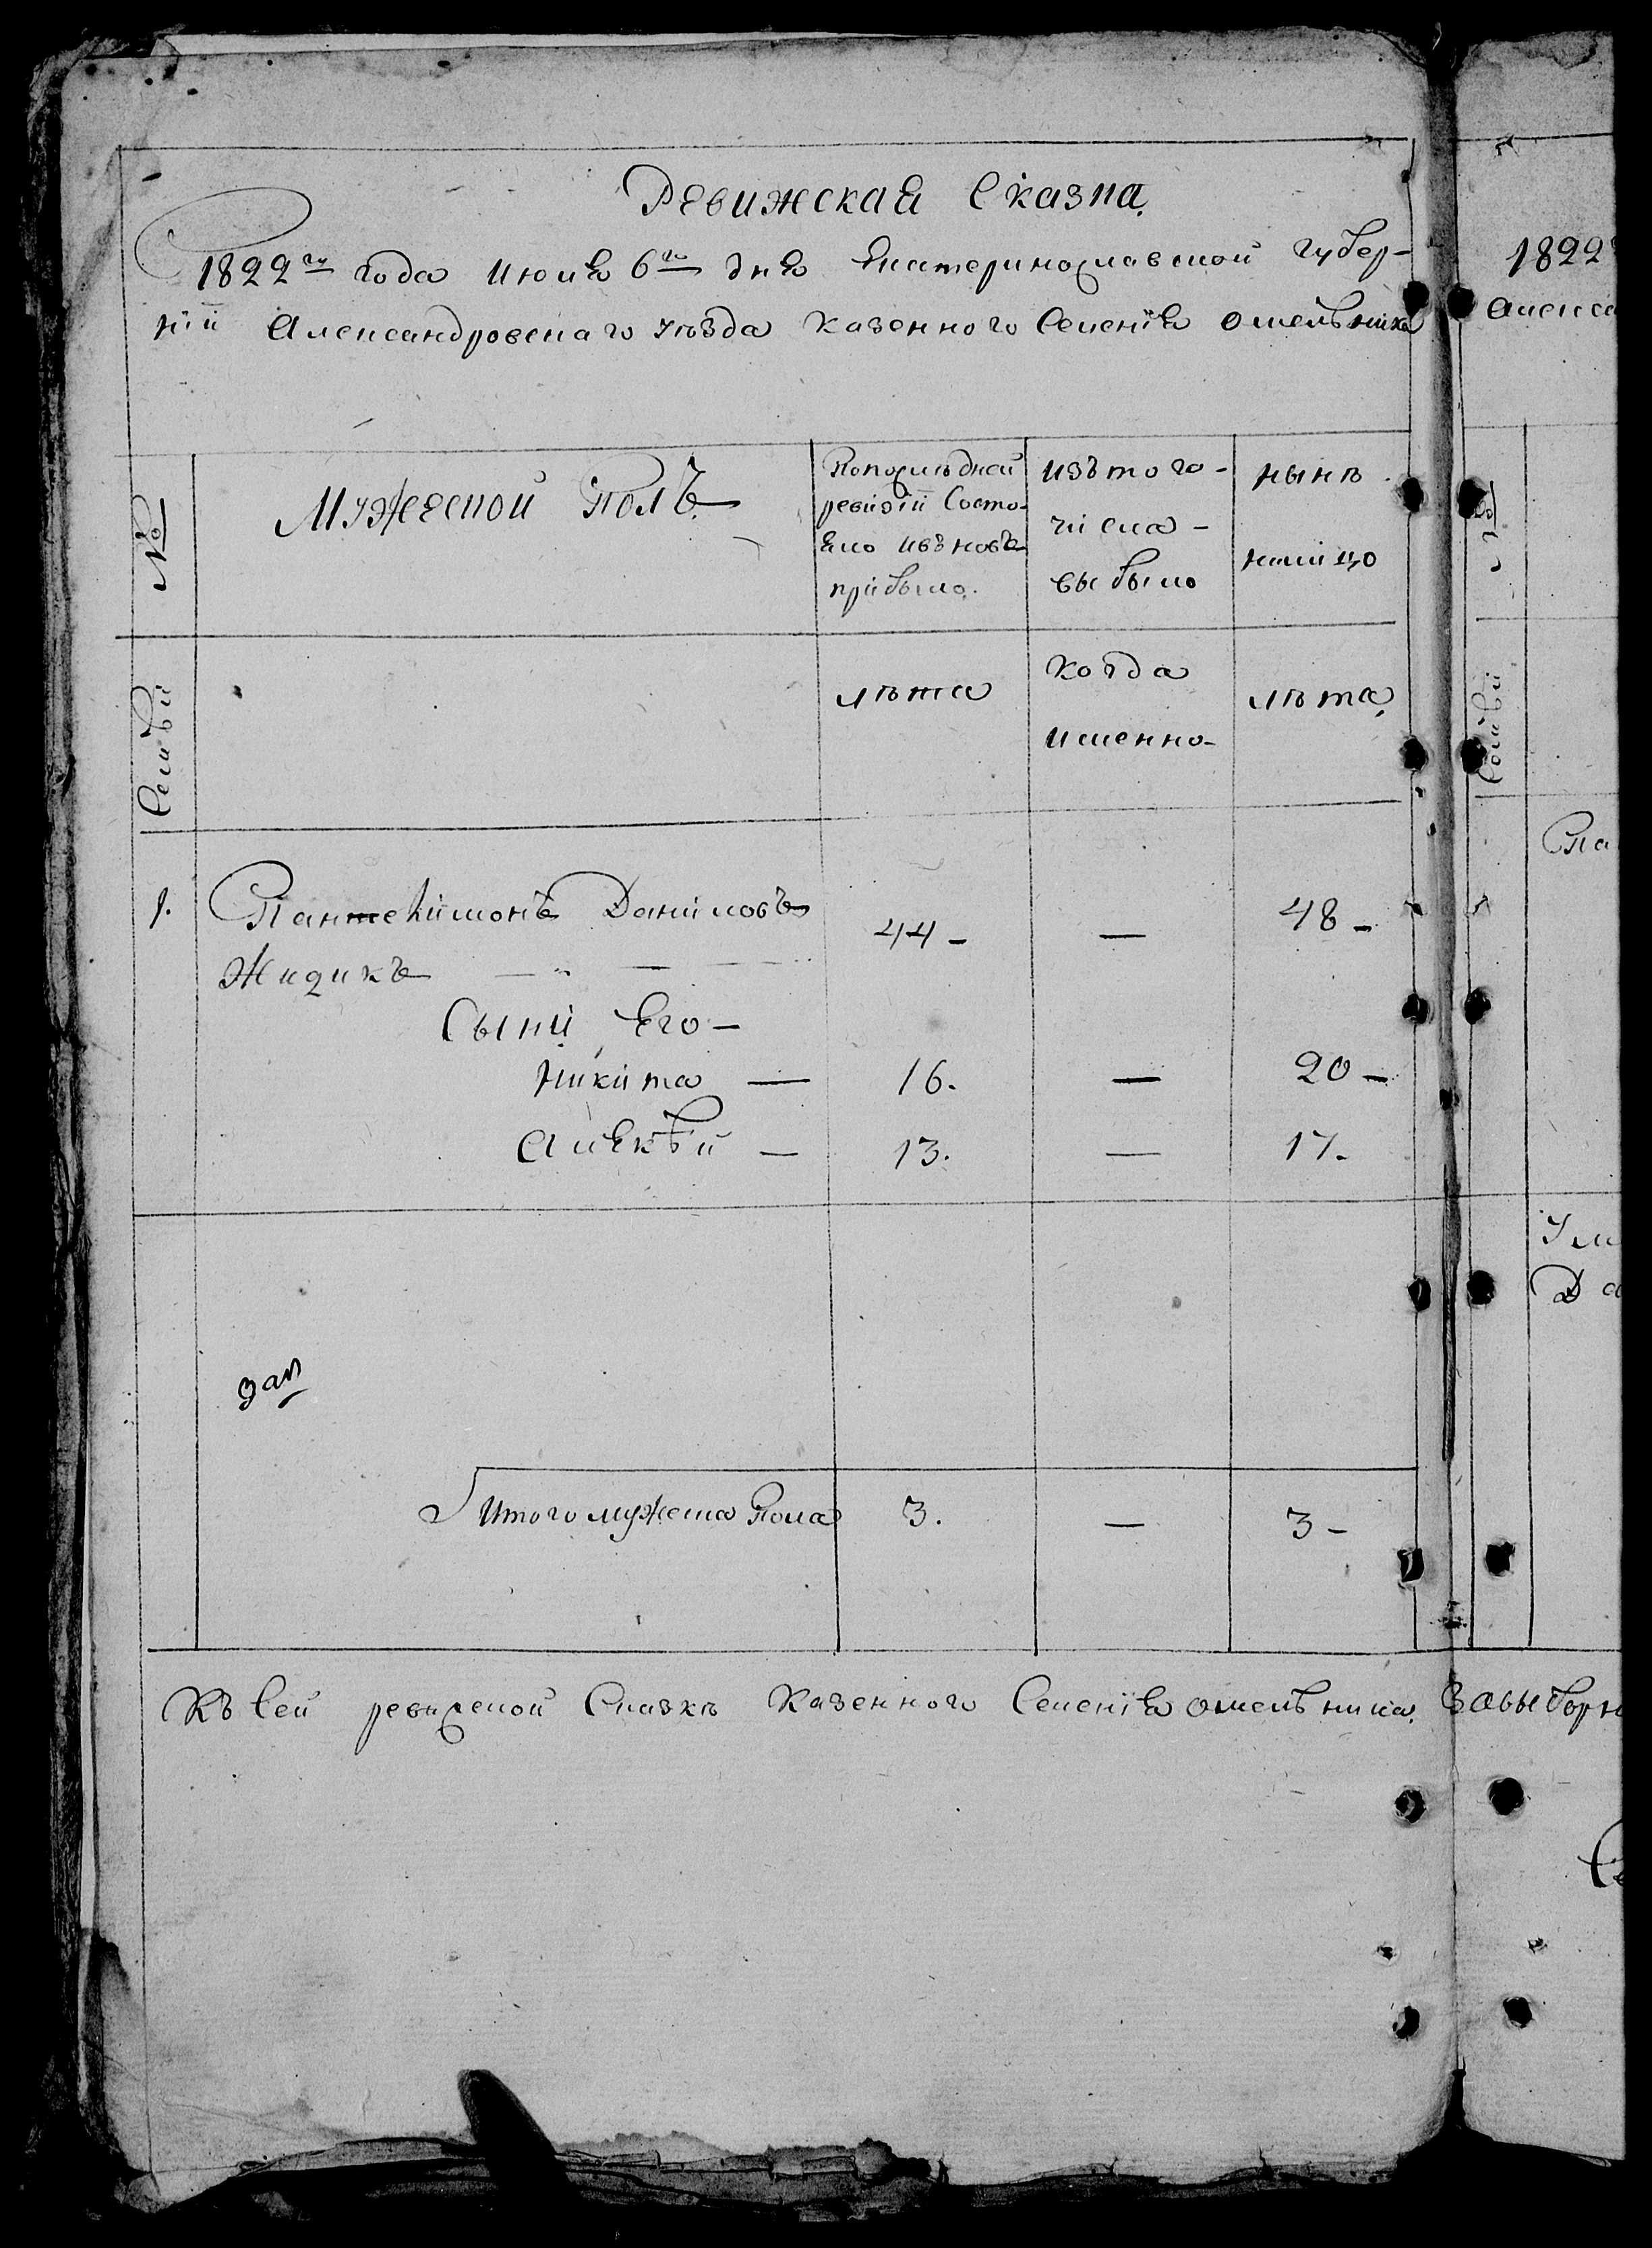 Ревижская Сказка
1822го года июля 6го дня Екатеринославской Губер-
нїи Александровскаго уѣзда Казенного Селенїя Омельника
№
Мужеской Полъ
Попослѣдней
ревизїи Состо-
яло ивъновь
прибыло.
изътого-
числа-
выбыло
нынѣ
налицо
Семьи
лѣта
когда
именно-
лѣта
1. Пантелимонъ Даниловъ
Жидикъ
44 - — 48 -
Сыни Его -
Никита — 16. — 20 -
Алексѣй — 13. — 17.
Итого мужеска Пола 3. — 3 -
Къ Сей ревижской Сказкѣ Казенного Селенїя Омельника
1822
Алекса
№
Семьи
Па
Да
Завыборн